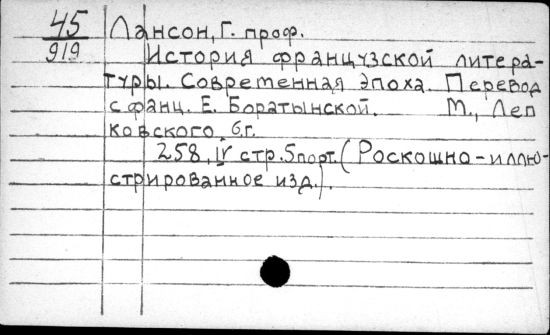 45 Лансон, Г. проф.
919 История французской литера-
туры. Современная эпоха. Перевод
с фанц. Е. Боратынской. М., Леп
ковского, б.г.
258, IV стр. 5 порт. (Роскошно-иллю-
стрированное изд.).